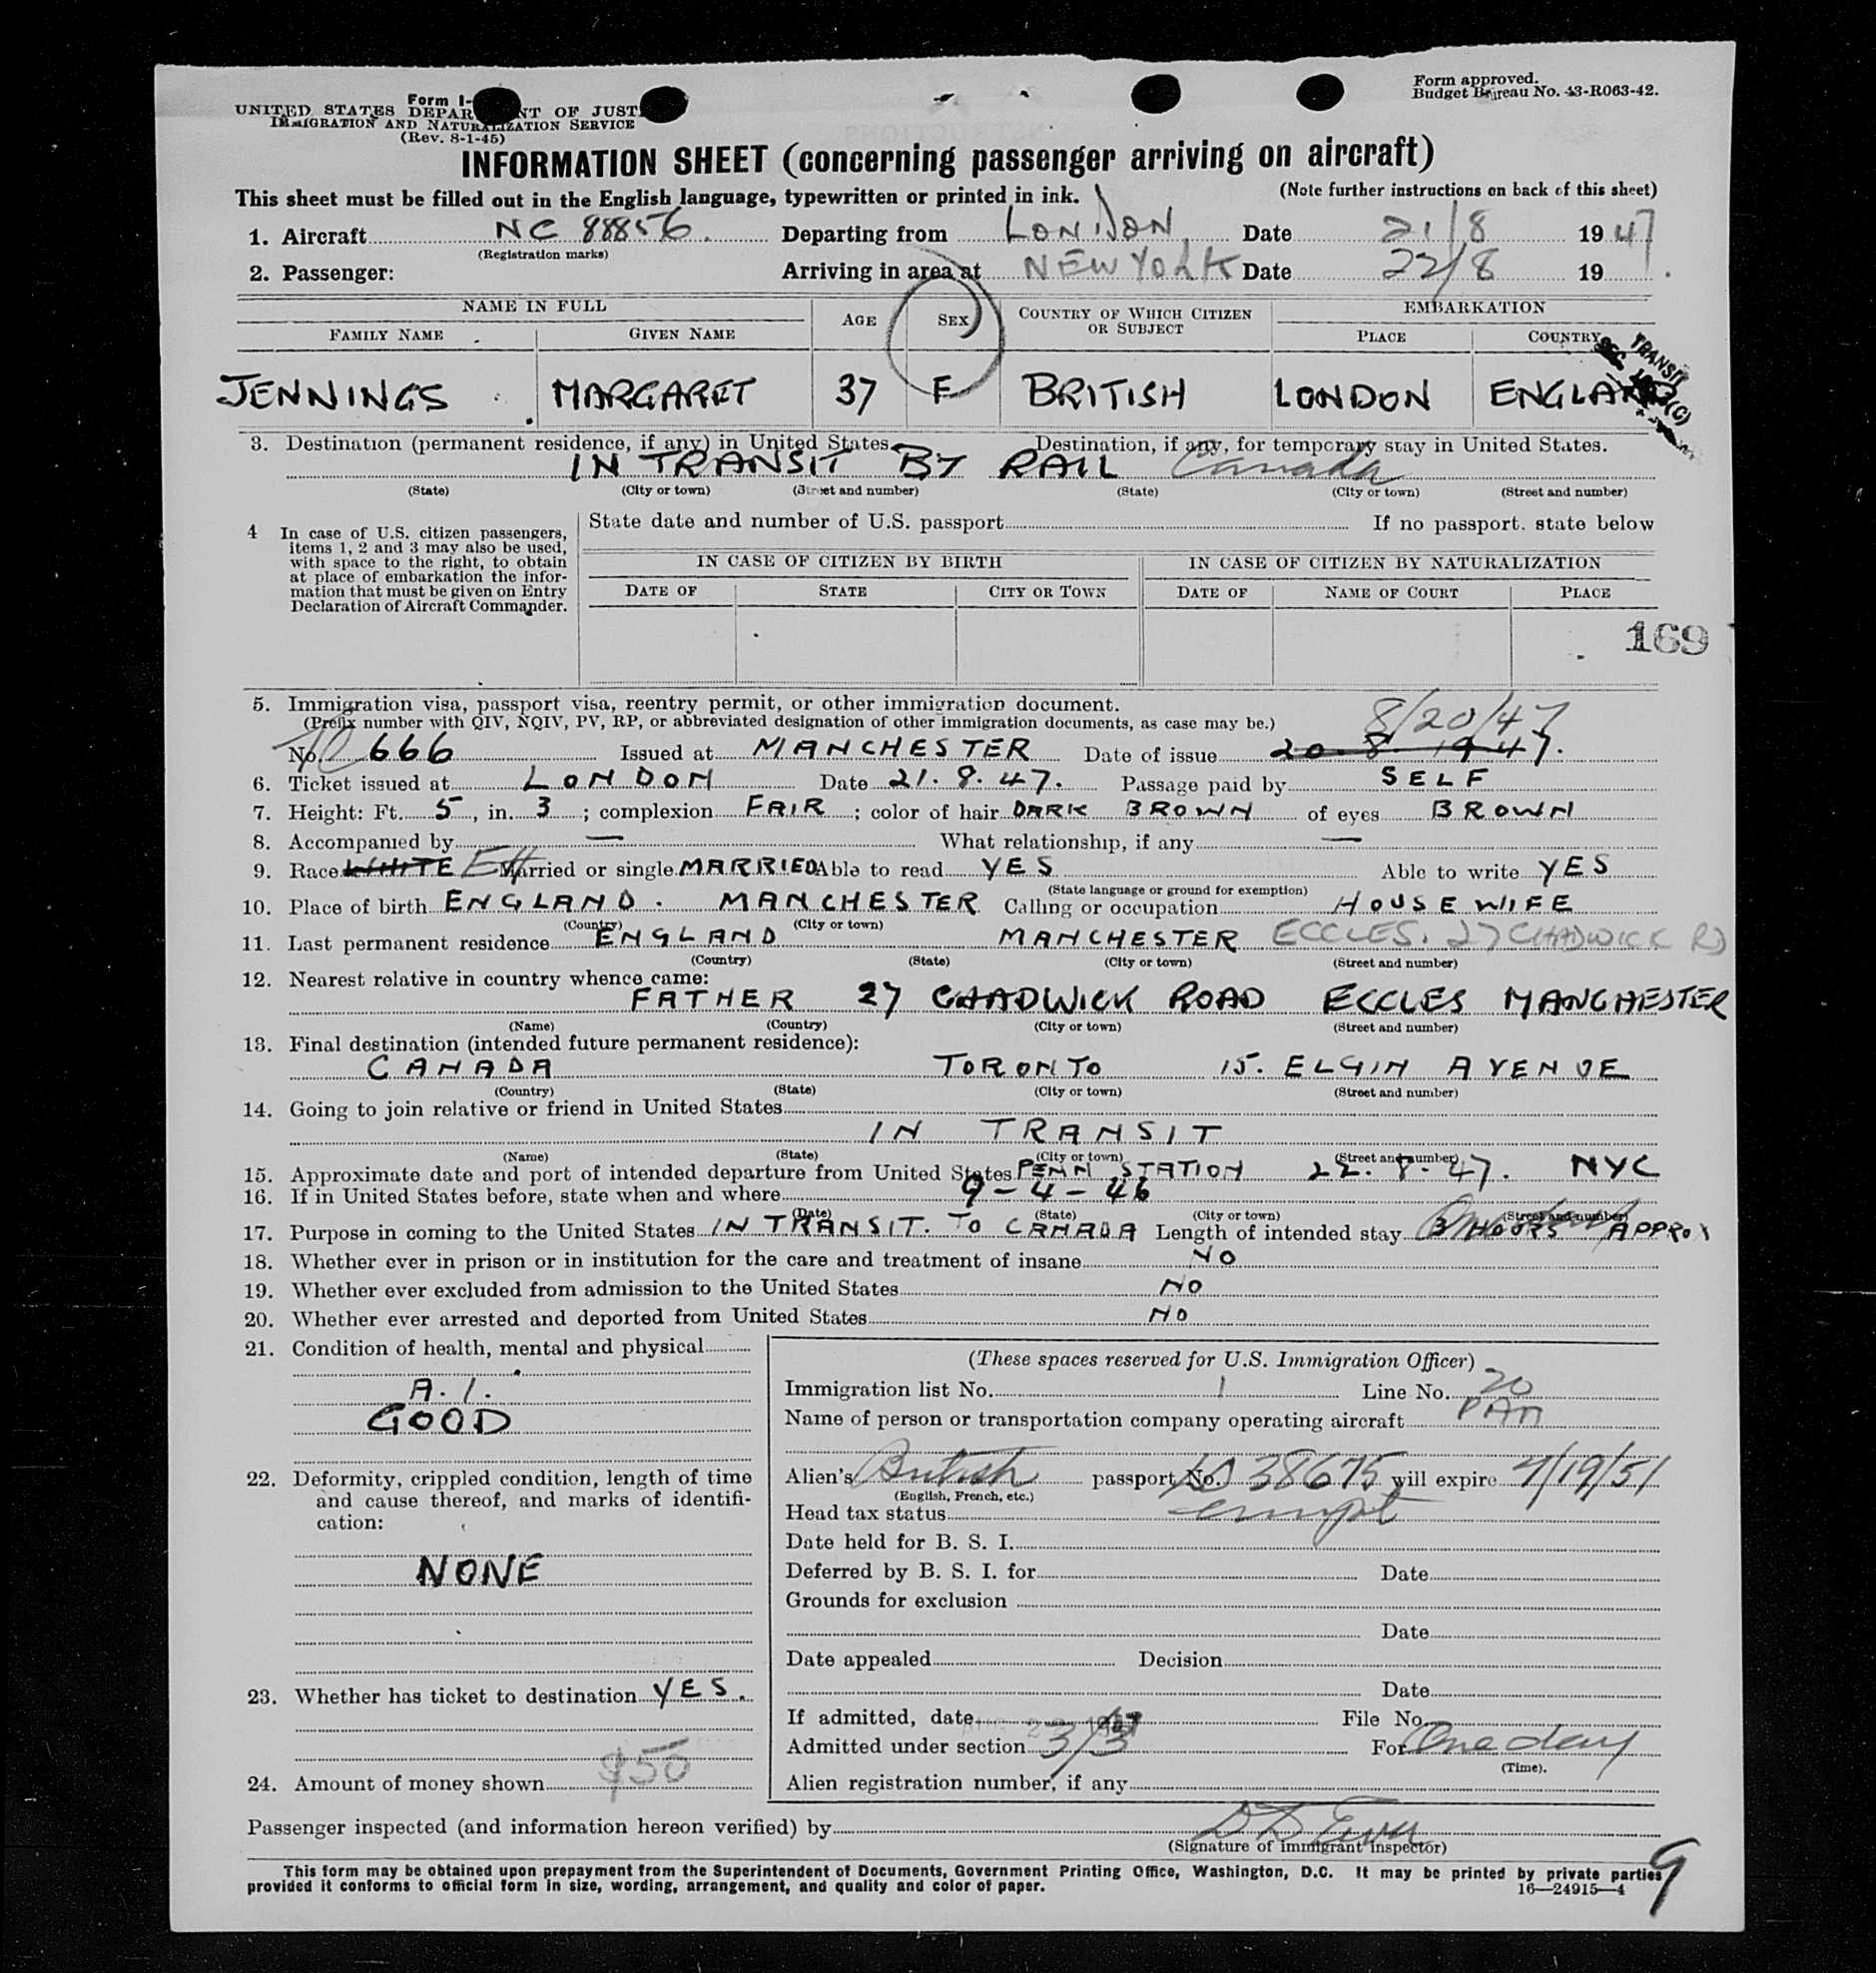 Form approved.
Budget Bureau No. 43-R063-42.
Form I-
UNITED STATES DEPARTMENT OF JUST
IMMIGRATION AND NATURALIZATION SERVICE
(Rev. 8-1-45)
INFORMATION SHEET (concerning passenger arriving on aircraft)
This sheet must be filled out in the English language, typewritten or printed in ink. (Note further instructions on back of this sheet)
1. Aircraft NC 88856 Departing from LONDON Date 21/8 1947
(Registration marks)
2. Passenger: Arriving in area at NEW YORK Date 22/8 19
NAME IN FULL AGE SEX COUNTRY OF WHICH CITIZEN OR SUBJECT EMBARKATION
FAMILY NAME GIVEN NAME PLACE COUNTRY
TRANSIT
JENNINGS MARGARET 37 F BRITISH LONDON ENGLAND
3. Destination (permanent residence, if any) in United States Destination, if any, for temporary stay in United States.
IN TRANSIT BY RAIL Canada
(State) (City or town) (Street and number) (State) (City or town) (Street and number)
4 In case of U.S. citizen passengers, items 1, 2 and 3 may also be used, with space to the right, to obtain at place of embarkation the information that must be given on Entry Declaration of Aircraft Commander.
State date and number of U.S. passport If no passport. state below
IN CASE OF CITIZEN BY BIRTH IN CASE OF CITIZEN BY NATURALIZATION
DATE OF STATE CITY OR TOWN DATE OF NAME OF COURT PLACE
169
5. Immigration visa, passport visa, reentry permit, or other immigration document.
(Prefix number with QIV, NQIV, PV, RP, or abbreviated designation of other immigration documents, as case may be.) 8/20/47
No. 666 Issued at MANCHESTER Date of issue 20-8-1947.
6. Ticket issued at LONDON Date 21.8.47. Passage paid by SELF
7. Height: Ft. 5, in. 3; complexion FAIR; color of hair DARK BROWN of eyes BROWN
8. Accompanied by — What relationship, if any —
9. Race WHITE Married or single MARRIED Able to read YES Able to write YES
(State language or ground for exemption)
10. Place of birth ENGLAND. MANCHESTER Calling or occupation HOUSEWIFE
(Country) (City or town)
11. Last permanent residence ENGLAND MANCHESTER ECCLES. 27 CHADWICK RD
(Country) (State) (City or town) (Street and number)
12. Nearest relative in country whence came:
FATHER 27 CHADWICK ROAD ECCLES MANCHESTER
(Name) (Country) (City or town) (Street and number)
13. Final destination (intended future permanent residence):
CANADA TORONTO 15. ELGIN AVENUE
(Country) (State) (City or town) (Street and number)
14. Going to join relative or friend in United States
IN TRANSIT
(Name) (State) (City or town) (Street and number)
15. Approximate date and port of intended departure from United States PENN STATION 22.8.47. NYC
16. If in United States before, state when and where 9-4-46
(Date) (State) (City or town) (Street and number)
17. Purpose in coming to the United States IN TRANSIT. TO CANADA Length of intended stay 3 HOURS APPROX
18. Whether ever in prison or in institution for the care and treatment of insane NO
19. Whether ever excluded from admission to the United States NO
20. Whether ever arrested and deported from United States NO
21. Condition of health, mental and physical
A.1.
GOOD
22. Deformity, crippled condition, length of time and cause thereof, and marks of identification:
NONE
23. Whether has ticket to destination YES.
24. Amount of money shown $50
(These spaces reserved for U.S. Immigration Officer)
Immigration list No. 1 Line No. 20
Name of person or transportation company operating aircraft PAA
Alien's British passport No. 38675 will expire 7/19/51
(English, French, etc.)
Head tax status exempt
Date held for B. S. I.
Deferred by B. S. I. for Date
Grounds for exclusion
Date
Date appealed Decision
Date
If admitted, date File No.
Admitted under section 3/3 For One day
(Time).
Alien registration number, if any
Passenger inspected (and information hereon verified) by
(Signature of immigrant inspector)
This form may be obtained upon prepayment from the Superintendent of Documents, Government Printing Office, Washington, D.C. It may be printed by private parties
provided it conforms to official form in size, wording, arrangement, and quality and color of paper. 16—24915—4
9